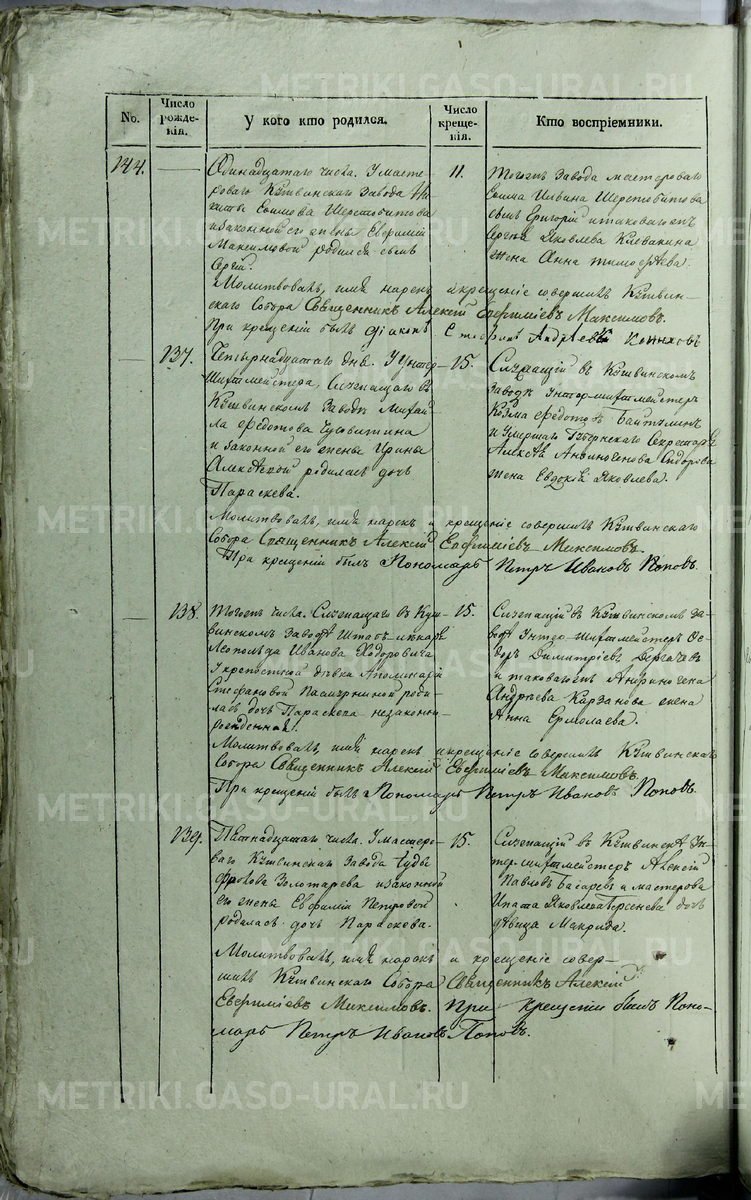 METRIKI.GASO-URAL.RU
No.
Число рожде-
нія.
У кого кто родился.
Число креще-
нія.
Кто воспріемники.
144.
Одинадцатаго числа. У масте-
роваго Кушвинскаго Завода Ни-
киты Ефимова Шерстобитова
и законной его жены Евфимій
Максимовой родился сынъ
Сергій.
11.
Тогожъ Завода мастероваго
Ефима Ильина Шерстобитова
сынъ Григорій и таковагожъ
Сергѣя Яковлева Клевакина
жена Анна Тимофѣева.
Молитвовалъ, имя нарекъ и крещеніе совершилъ Кушвин-
скаго Собора Священникъ Алексій Евфиміевъ Максимовъ.
При крещеніи былъ діаконъ Стефанъ Андреевъ
137.
Четырнадцатаго дня. У Унтер-
Шихтмейстера, Служащаго въ
Кушвинскомъ Заводѣ Михай-
ла Федотова Чусовитина
и законной его жены Ирины
Алексѣевой родилась дочь
Параскева.
15.
Служащій въ Кушвинскомъ
Заводѣ Унтершихтмейстеръ
Козма Федотовъ
и умершаго Губернскаго Секретаря
Алексѣя Сидорова
жена Евдокія Яковлева.
Молитвовалъ, имя нарекъ и крещеніе совершилъ Кушвинскаго
Собора Священникъ Алексій Евфиміевъ Максимовъ.
При крещеніи былъ Пономарь Петръ Ивановъ Поповъ.
138.
Тогожъ числа. Служащаго въ Куш-
винскомъ Заводѣ Штабъ-лѣкаря
Леопольда Иванова
у крепостной дѣвки Аполинаріи
Стефановой роди-
лась дочь Параскева незаконно-
рожденная.
15.
Служащій въ Кушвинскомъ За-
водѣ Унтер-шихтмейстеръ Ѳе-
доръ Димитріевъ Дергачевъ
и таковагожъ
Андреева Карзанова жена
Анна Ермолаева.
Молитвовалъ, имя нарекъ и крещеніе совершилъ Кушвинскаго
Собора Священникъ Алексій Евфиміевъ Максимовъ.
При крещеніи былъ Пономарь Петръ Ивановъ Поповъ.
139.
Пятнадцатаго числа. У мастеро-
ваго Кушвинскаго Завода Іуды
Фролова Золотарева и законной
его жены Евфиміи Петровой
родилась дочь Параскева.
15.
Служащій въ Кушвинскѣ Ун-
тер-шихтмейстеръ Алексій
Павловъ и мастероваго
Ипата Яковлева дочь
дѣвица Макрида.
Молитвовалъ, имя нарекъ и крещеніе совер-
шилъ Кушвинскаго Собора Священникъ Алексій
Евфиміевъ Максимовъ. При крещеніи былъ Поно-
марь Петръ Ивановъ Поповъ.